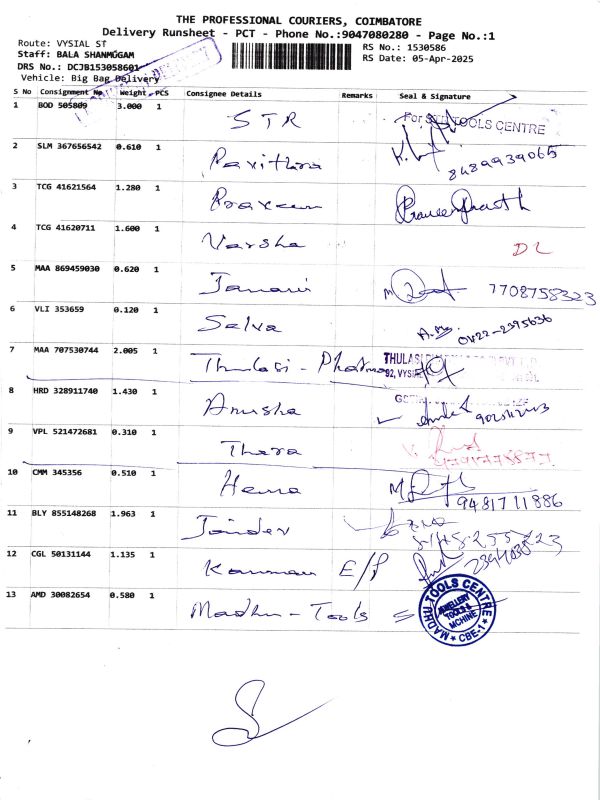 THE PROFESSIONAL COURIERS, COIMBATORE
Delivery Runsheet - PCT - Phone No.:9047080280 - Page No.:1
Route: VYSIAL ST
RS No.: 1530586
Staff: BALA SHANMUGAM
RS Date: 05-Apr-2025
DRS No.: DCJB153058601
Vehicle: Big Bag Delivery
S No Consignment No Weight PCS Consignee Details Remarks Seal & Signature
1 BOD 505809 3.000 1 STR For STR TOOLS CENTRE
2 SLM 367656542 0.610 1 Pavithra 8489939065
3 TCG 41621564 1.280 1 Praveen
4 TCG 41620711 1.600 1 Varsha DL
5 MAA 869459030 0.620 1 Janani 7708758323
6 VLI 353659 0.120 1 Selva 0422-2395636
7 MAA 707530744 2.005 1 Thulasi - Pharma THULASI
92, VYSI
8 HRD 328911740 1.430 1 Anusha
9 VPL 521472681 0.310 1 Thara
10 CMM 345356 0.510 1 Hema 9481711886
11 BLY 855148268 1.963 1
12 CGL 50131144 1.135 1 Kannan E/P
13 AMD 30082654 0.580 1 Madhu - Tools
MADHU TOOLS CENTRE
JEWELLERY
TOOLS &
MCHINE
CBE-1